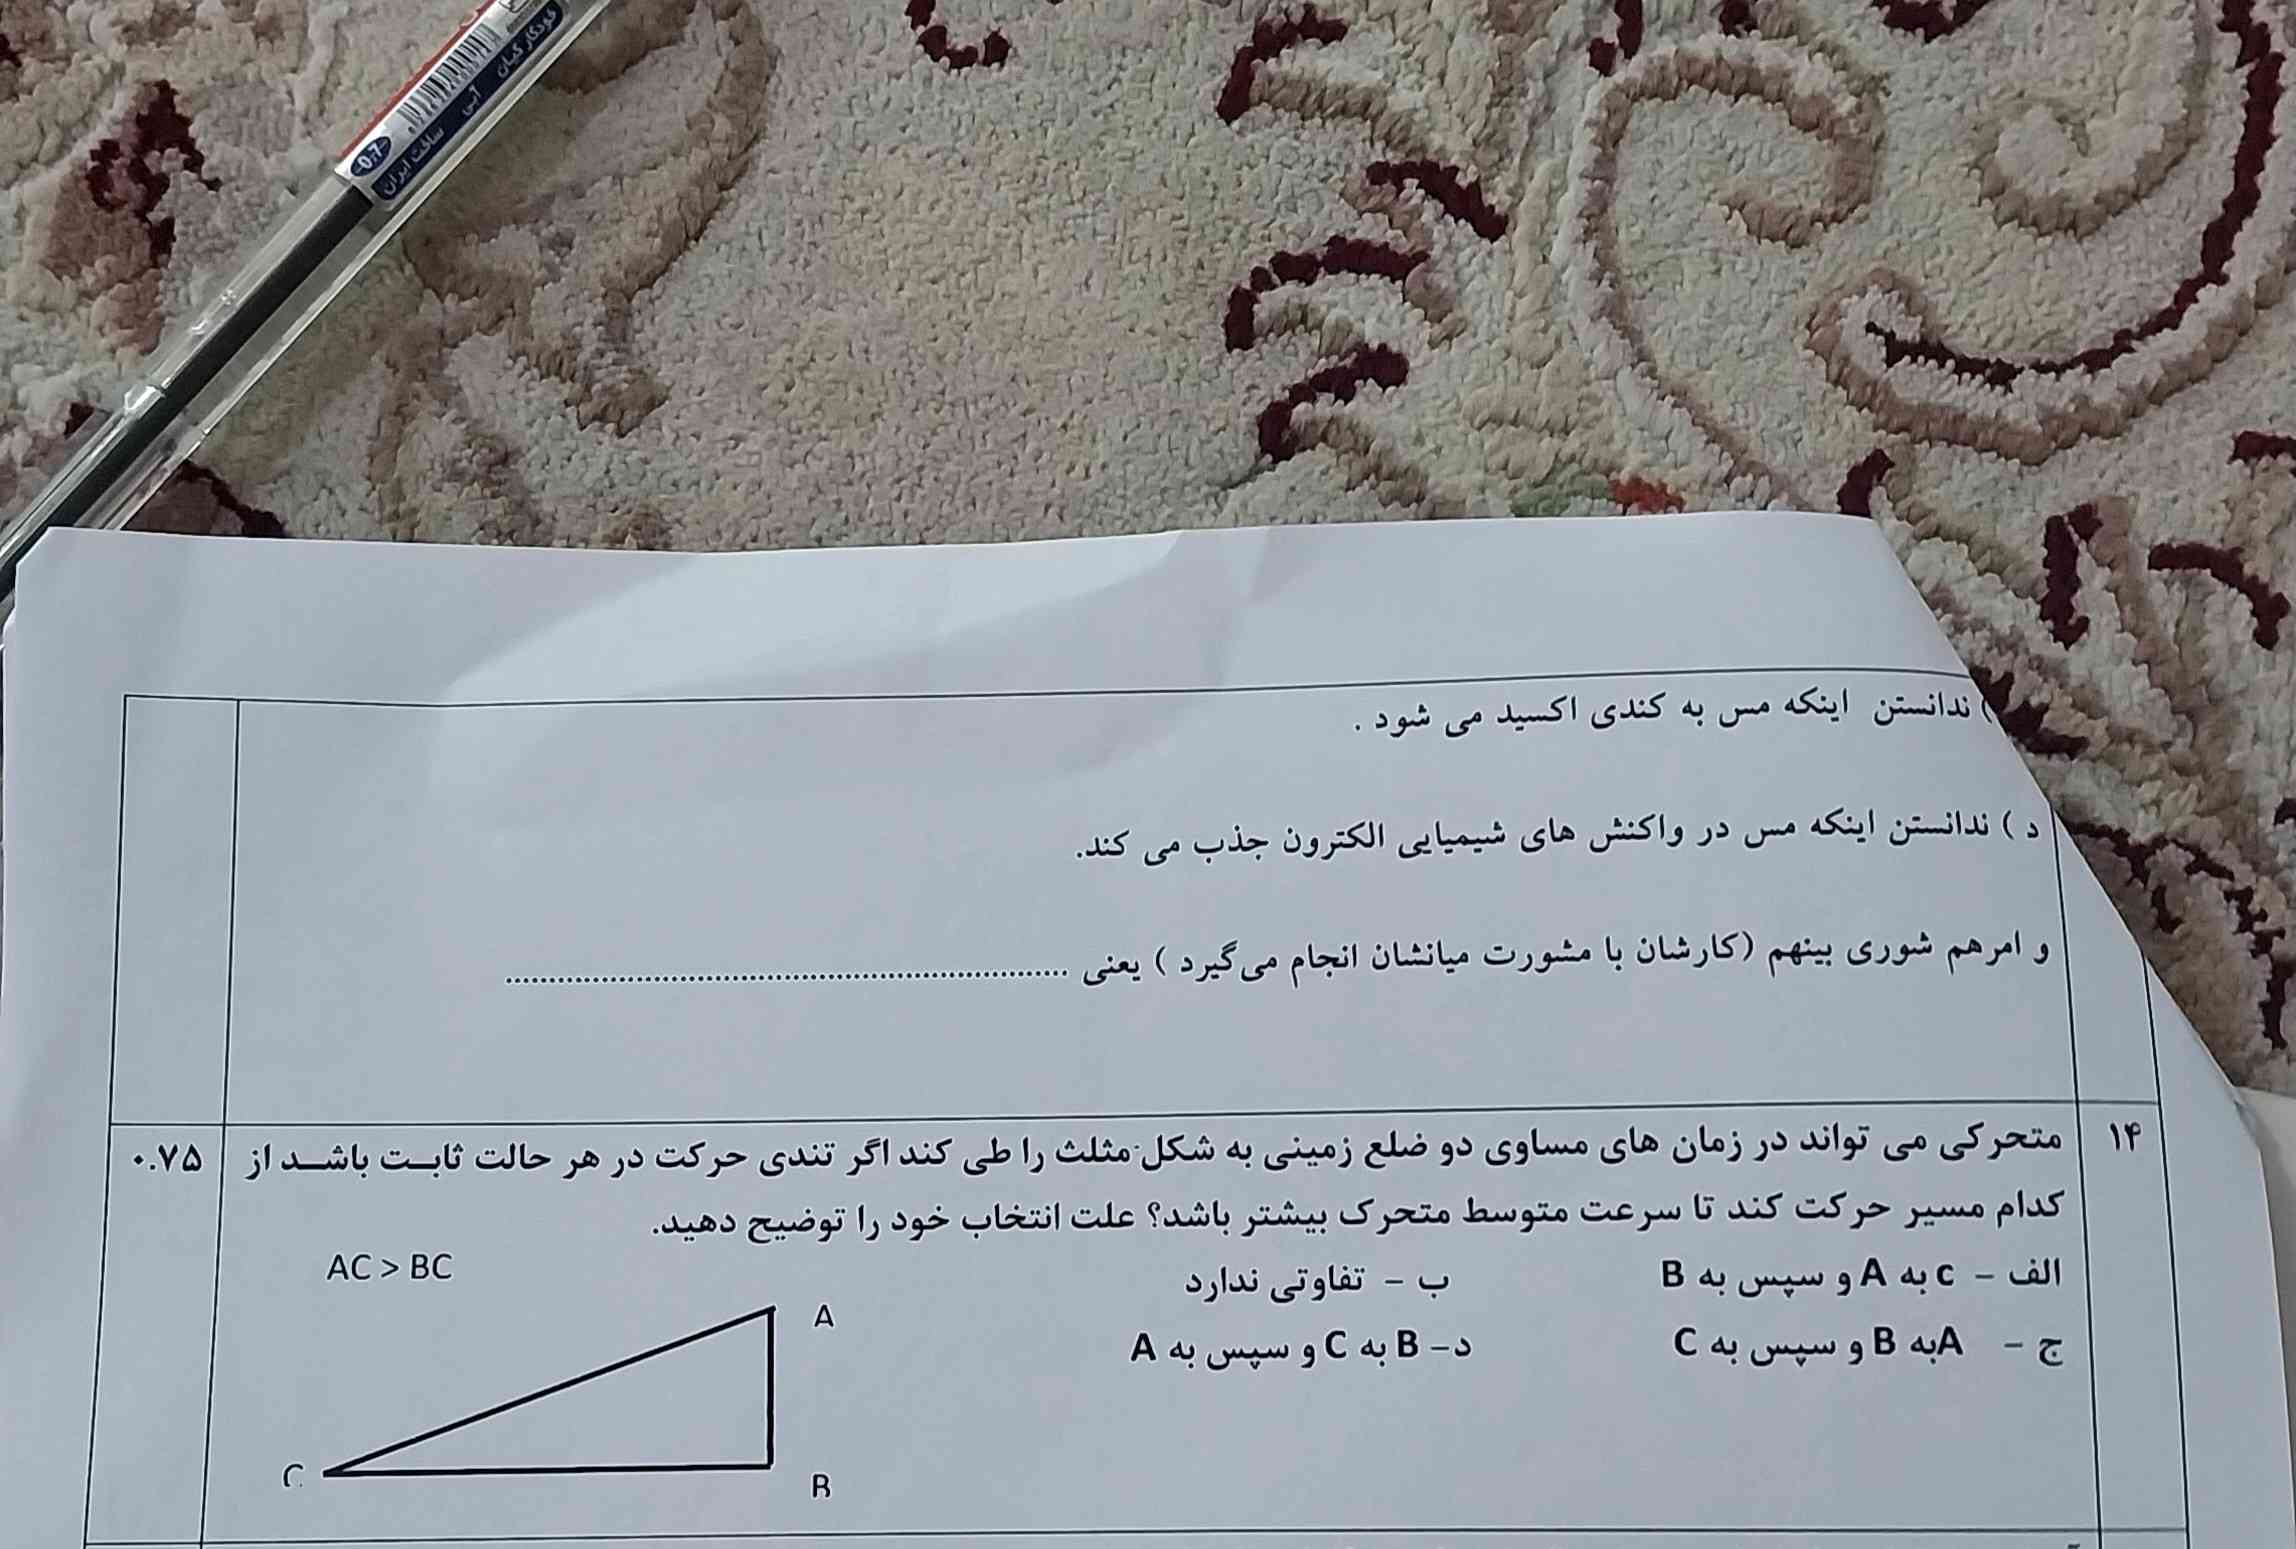 خودکار کیان
آبی
ساخت ایران
0.7
) ندانستن اینکه مس به کندی اکسید می شود .
د ) ندانستن اینکه مس در واکنش های شیمیایی الکترون جذب می کند.
و امرهم شوری بینهم (کارشان با مشورت میانشان انجام می‌گیرد ) یعنی ........................................................
۱۴
متحرکی می تواند در زمان های مساوی دو ضلع زمینی به شکل مثلث را طی کند اگر تندی حرکت در هر حالت ثابت باشد از
۰.۷۵
کدام مسیر حرکت کند تا سرعت متوسط متحرک بیشتر باشد؟ علت انتخاب خود را توضیح دهید.
الف - c به A و سپس به B
ب - تفاوتی ندارد
AC > BC
ج - Aبه B و سپس به C
د- B به C و سپس به A
A
C
B